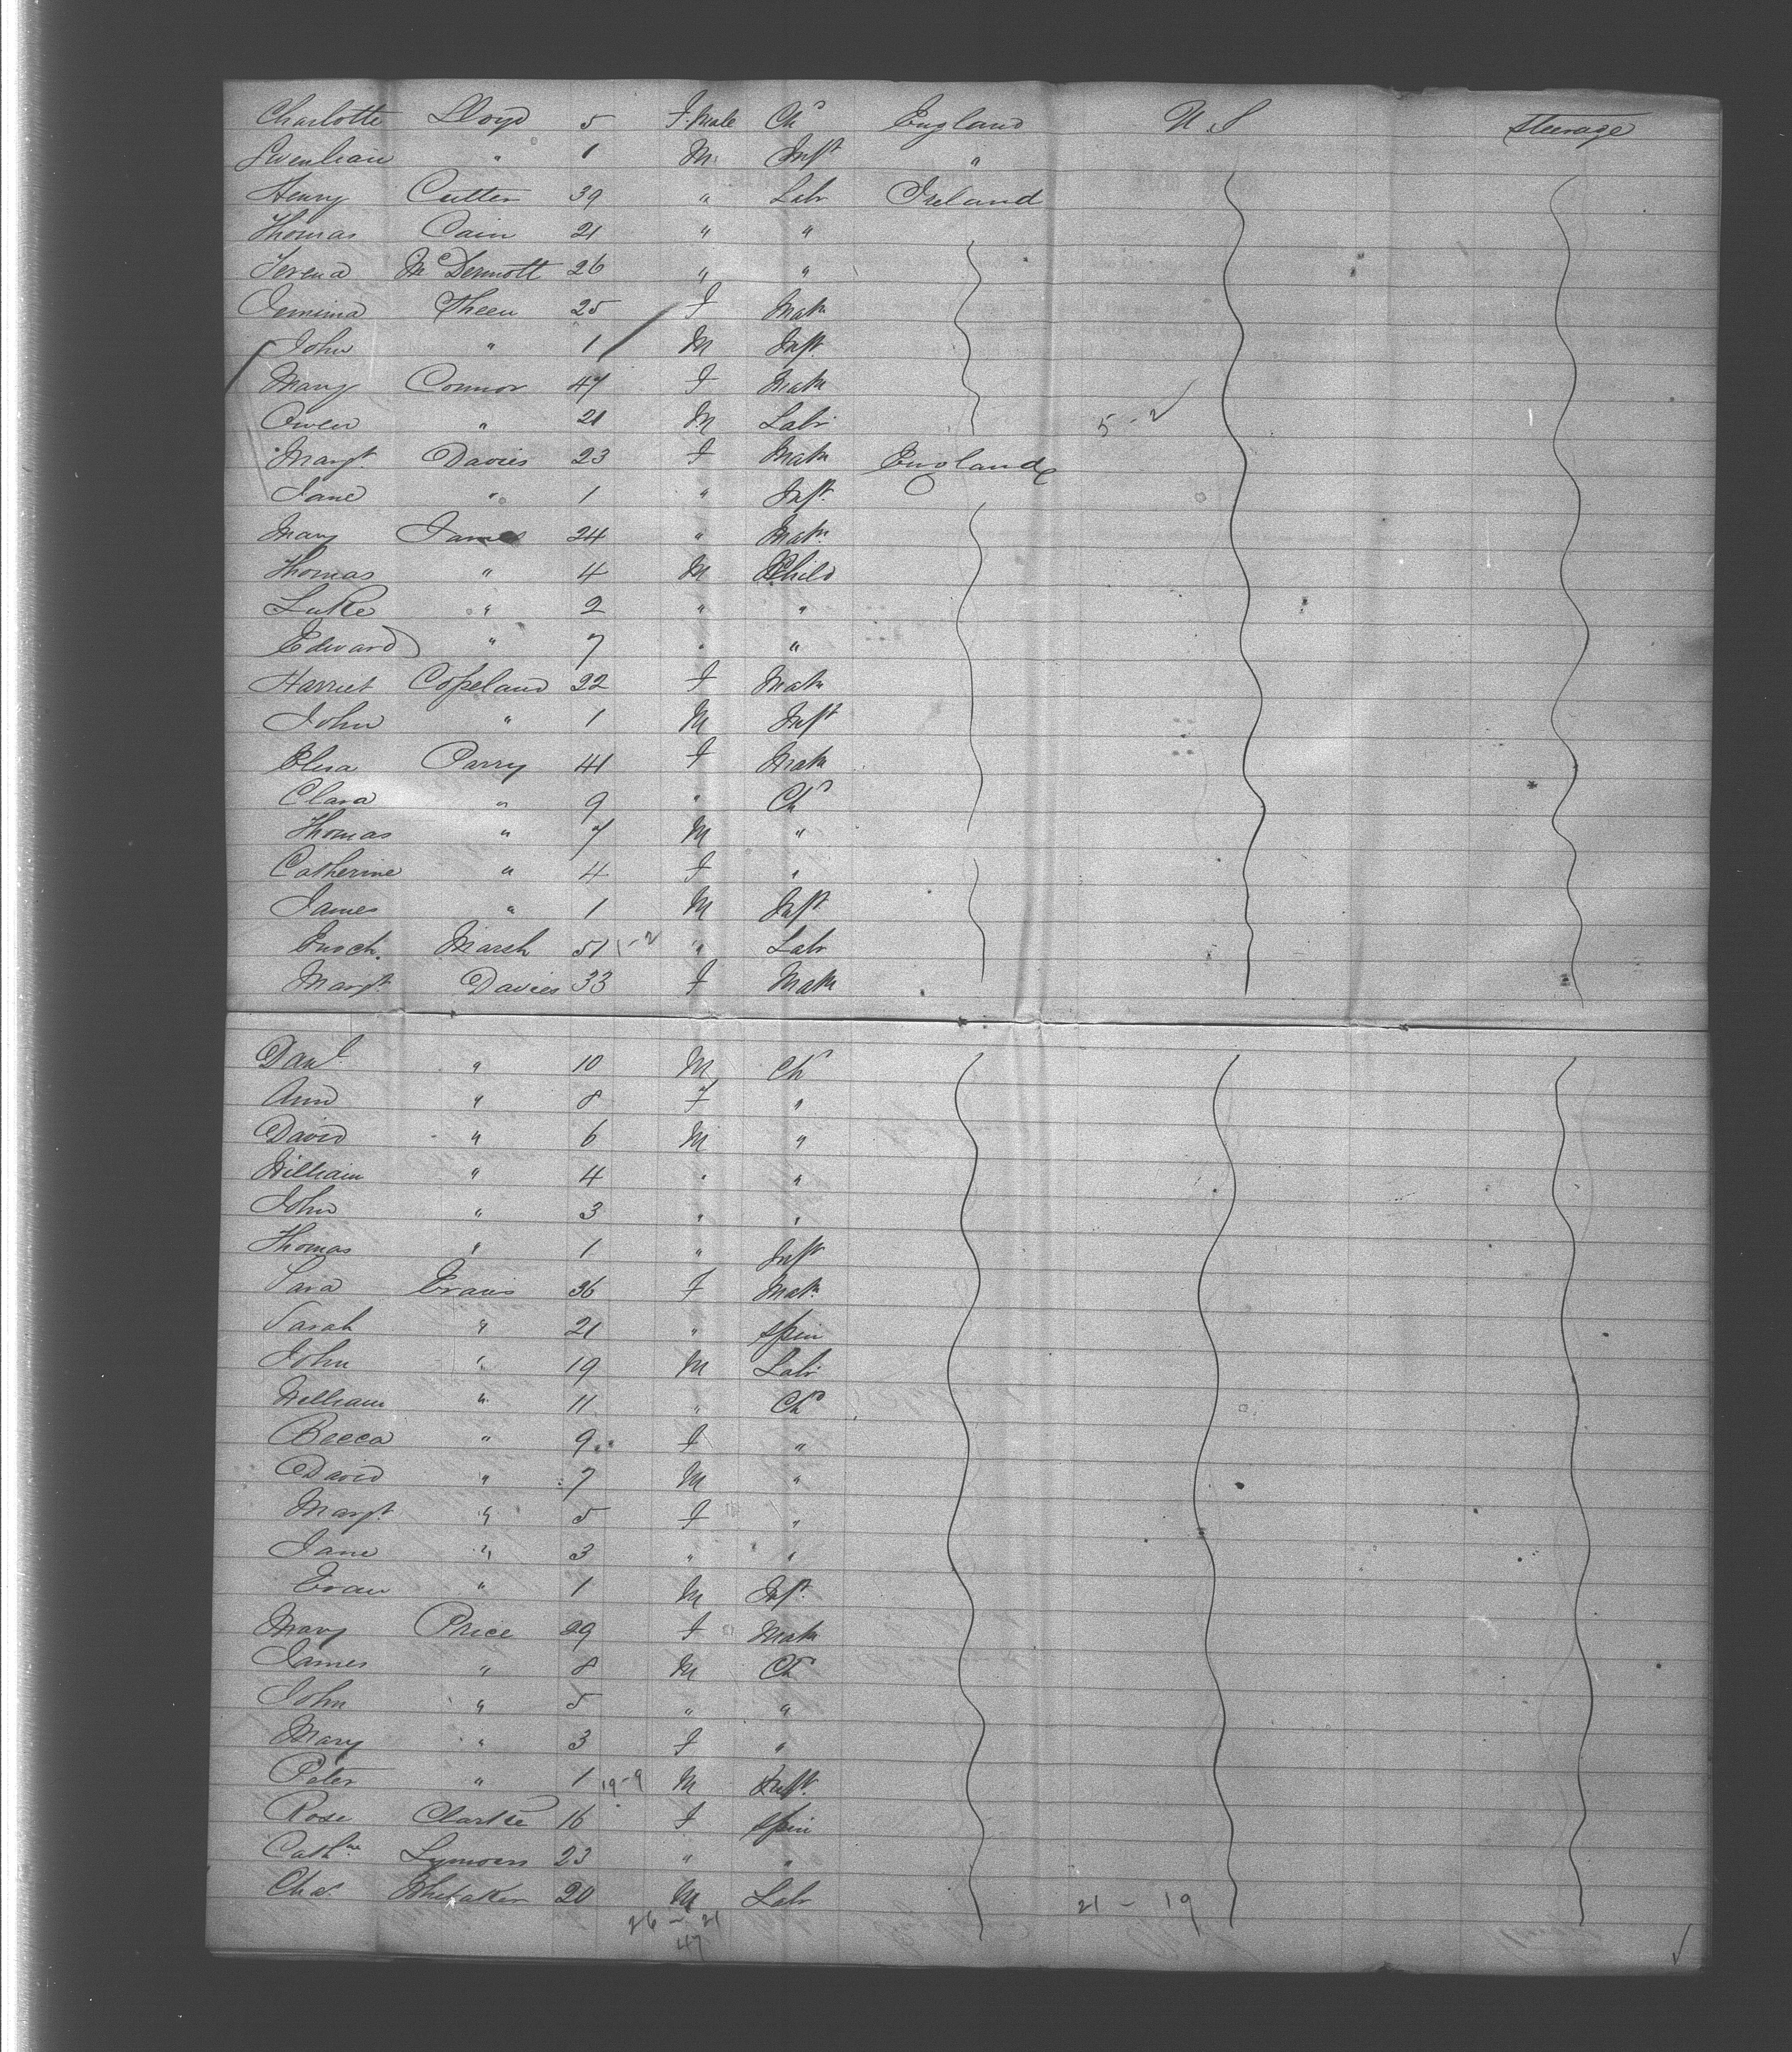 Charlotte Lloyd 5 F.male Chd England U S Steerage
" 1 M Inft "
Henry Cutter 39 " Labr Ireland
Thomas Cain 21 " "
McDermott 26 " "
Jemima Sheen 25 F Matn
John " 1 M Inft
Mary Connor 47 F Matn
Owen " 21 M Labr 5-2
Margt Davies 23 F Matn England
Jane " 1 " Inft
Mary James 24 " Matn
Thomas " 4 M Child
Luke " 2 " "
Edward " 7 " "
Harriet Copeland 22 F Matn
John " 1 M Inft
Eliza Parry 41 F Matn
Clara " 9 " Chd
Thomas " 7 M "
Catherine " 4 F "
James " 1 M Inft
Enoch Marsh 51 1-2 " Labr
Margt Davies 33 F Matn
Danl " 10 M Chd
Ann " 8 F "
David " 6 M "
William " 4 " "
John " 3 " "
Thomas " 1 " Inft
Sara Evans 36 F Matn
Sarah " 21 " Spin
John " 19 M Labr
William " 11 " Chd
Becca " 9 F "
David " 7 M "
Margt " 5 F "
Jane " 3 " "
Evan " 1 M Inft
Mary Price 29 F Matn
James " 8 M Chd
John " 5 " "
Mary " 3 F "
Peter " 1 19-9 M Inft
Rose Clarke 16 F Spin
Cathne Lymoss 23 " "
Chas Whitaker 20 M Labr 21-19
26-21
47